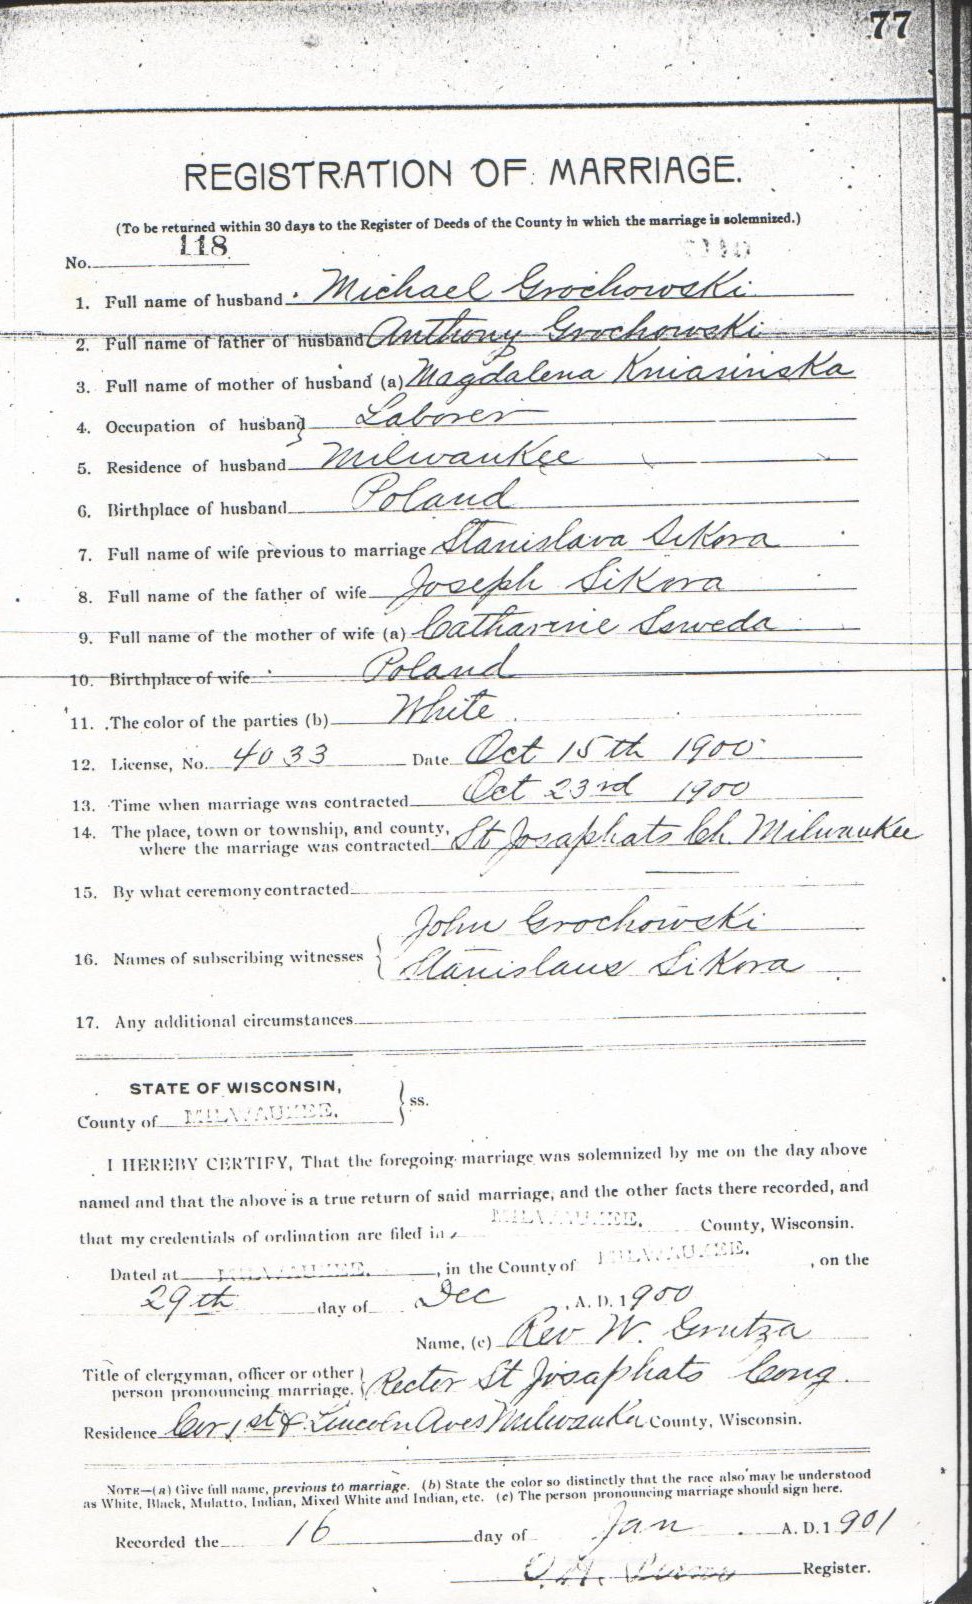 77
REGISTRATION OF MARRIAGE.
(To be returned within 30 days to the Register of Deeds of the County in which the marriage is solemnized.)
No. 118
1. Full name of husband Michael Grochowski
2. Full name of father of husband Anthony Grochowski
3. Full name of mother of husband (a) Magdalena Kniasinska
4. Occupation of husband Laborer
5. Residence of husband Milwaukee
6. Birthplace of husband Poland
7. Full name of wife previous to marriage Stanislava Sikora
8. Full name of the father of wife Joseph Sikora
9. Full name of the mother of wife (a) Catharine Szweda
10. Birthplace of wife Poland
11. The color of the parties (b) White
12. License, No. 4033 Date Oct 15th 1900
13. Time when marriage was contracted Oct 23rd 1900
14. The place, town or township, and county, where the marriage was contracted St Josaphats Ch. Milwaukee
15. By what ceremony contracted
16. Names of subscribing witnesses { John Grochowski
Stanislaus Sikora
17. Any additional circumstances
STATE OF WISCONSIN,
County of MILWAUKEE. } ss.
I HEREBY CERTIFY, That the foregoing marriage was solemnized by me on the day above
named and that the above is a true return of said marriage, and the other facts there recorded, and
that my credentials of ordination are filed in MILWAUKEE. County, Wisconsin.
Dated at MILWAUKEE. , in the County of MILWAUKEE. , on the
29th day of Dec , A. D. 1900
Name, (c) Rev W. Grutza
Title of clergyman, officer or other person pronouncing marriage. } Rector St Josaphats Cong.
Residence Cor 1st & Lincoln Aves Milwaukee County, Wisconsin.
NOTE—(a) Give full name, previous to marriage. (b) State the color so distinctly that the race also may be understood
as White, Black, Mulatto, Indian, Mixed White and Indian, etc. (c) The person pronouncing marriage should sign here.
Recorded the 16 day of Jan A. D. 1901
Register.